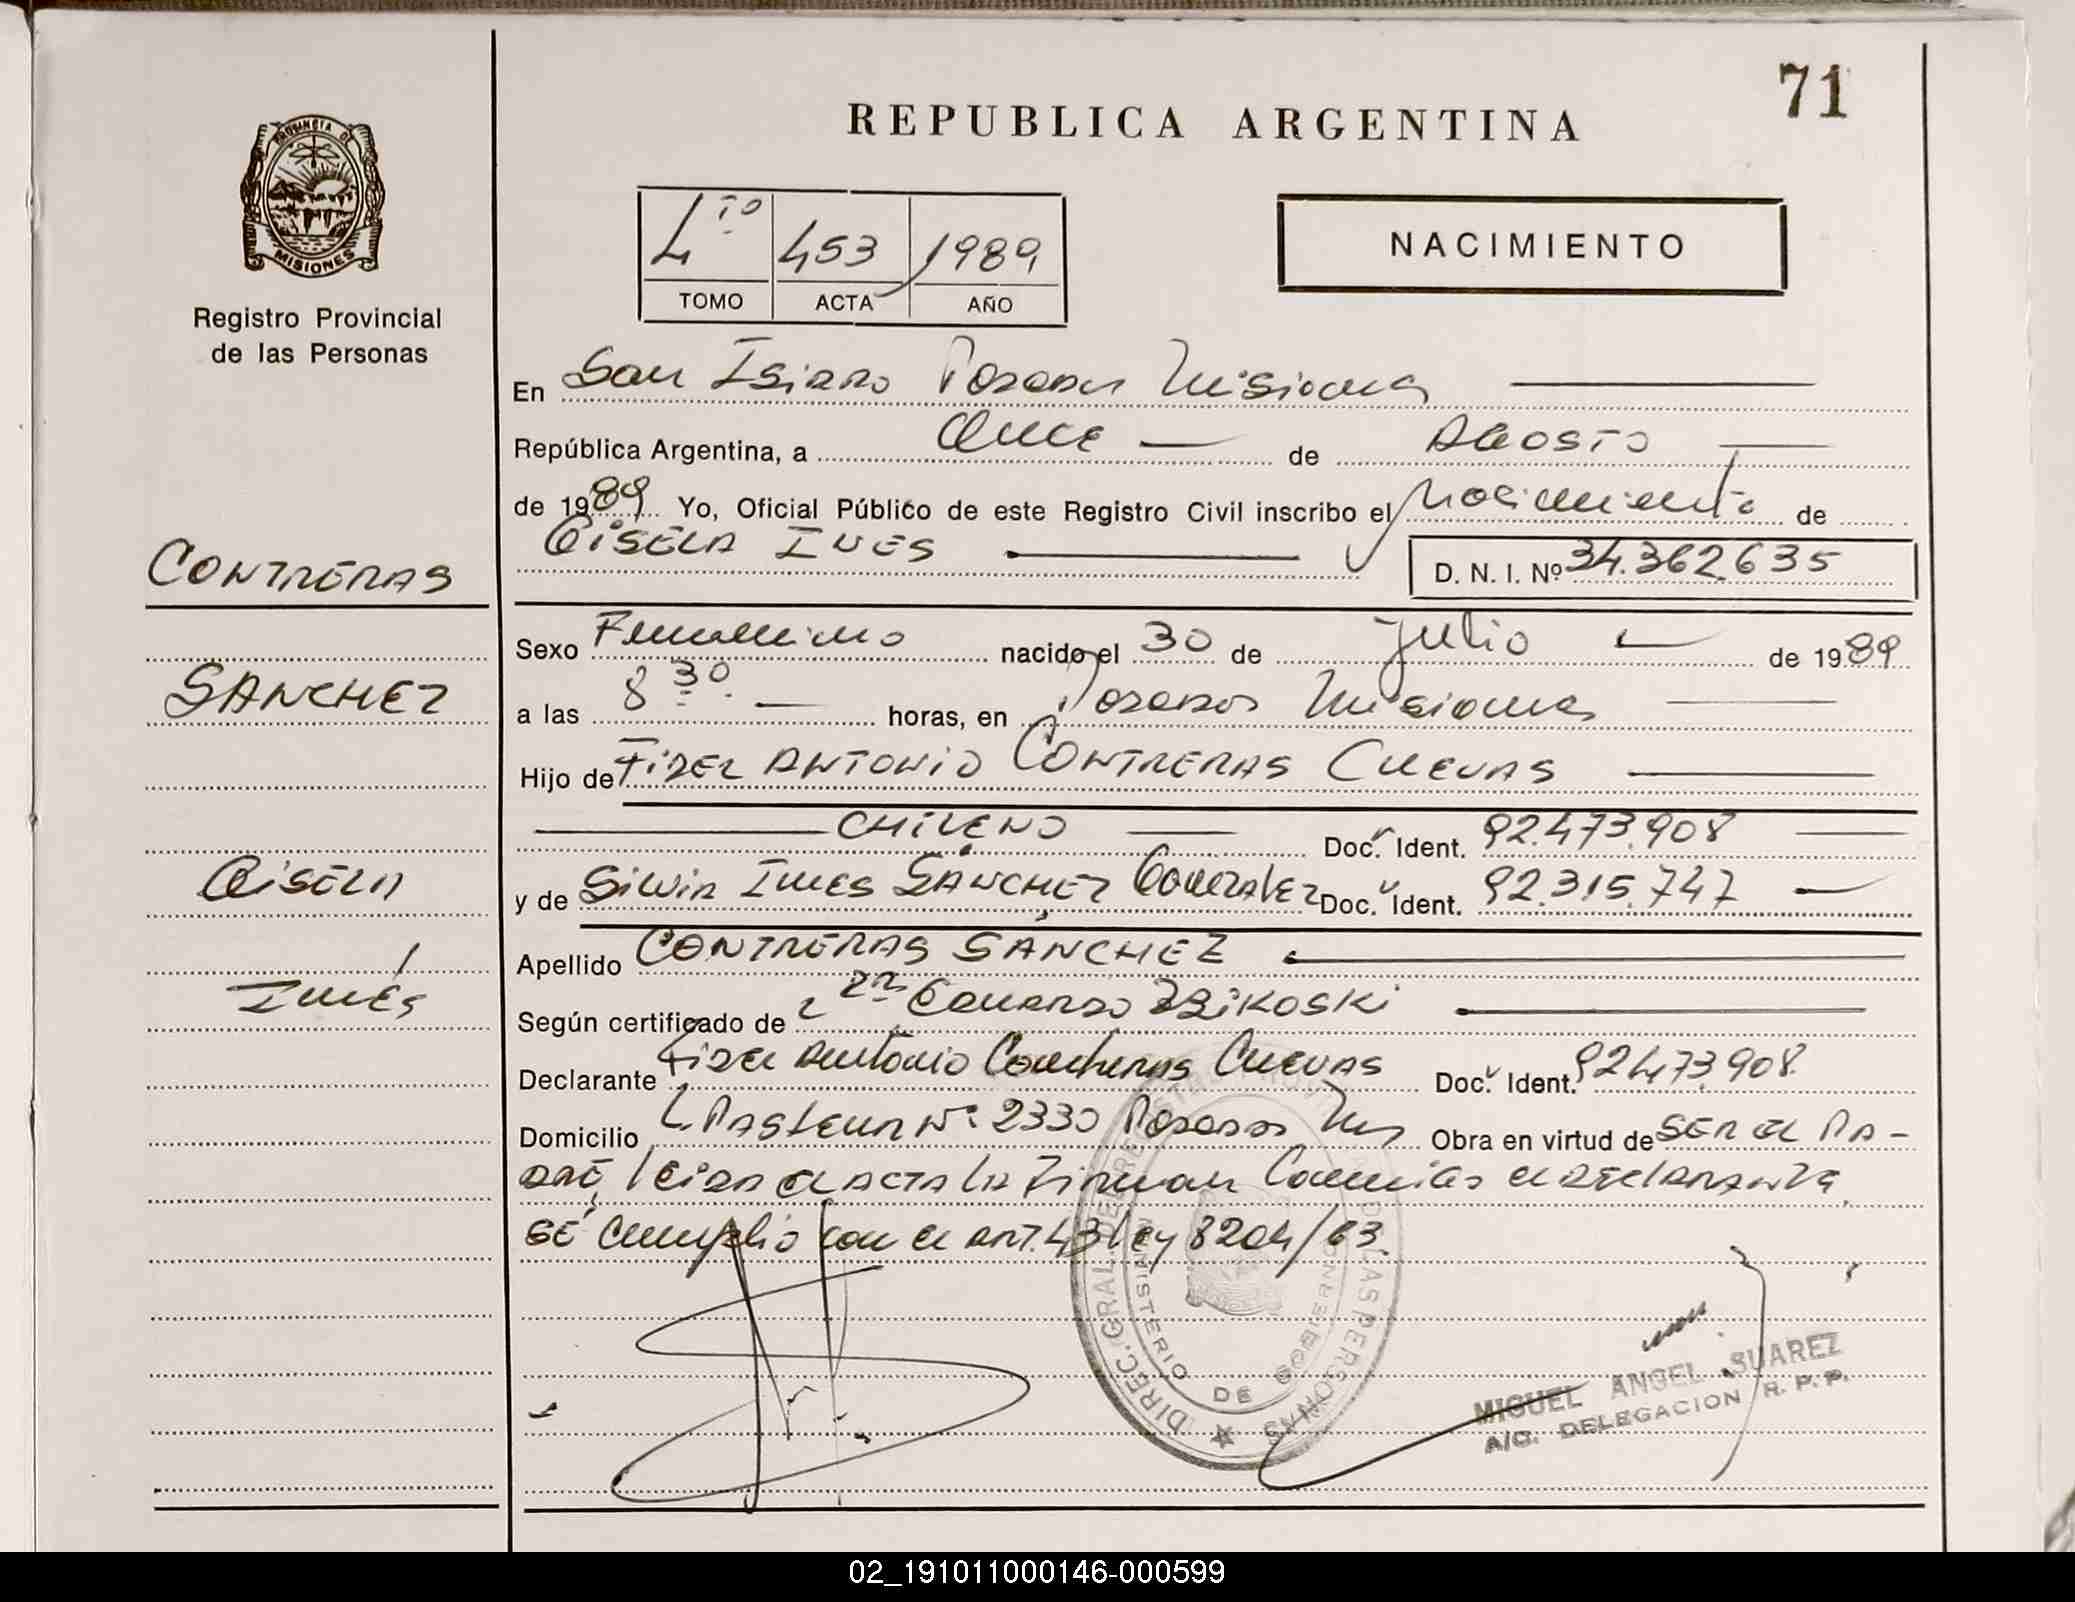 71
REPUBLICA ARGENTINA
PROVINCIA DE
MISIONES
Registro Provincial
de las Personas
4to 453 1989
TOMO ACTA AÑO
NACIMIENTO
En San Isidro Posadas Misiones
República Argentina, a Once de Agosto
de 1989 Yo, Oficial Público de este Registro Civil inscribo el Nacimiento de
Gisela Ines D. N. I. Nº 34.362.635
CONTRERAS
Sexo Femenino nacido el 30 de Julio de 1989
SANCHEZ
a las 8 30 horas, en Posadas Misiones
Hijo de Fidel Antonio Contreras Cuevas
CHILENO Doc. Ident. 92.473.908
Gisela
y de Silvia Ines Sánchez González Doc. Ident. 92.315.747
Apellido CONTRERAS SANCHEZ
Inés
Según certificado de Eduardo
Declarante Fidel Antonio Contreras Cuevas Doc. Ident. 92473.908
Domicilio L Pasteur Nº 2330 Posadas Mns Obra en virtud de ser el pa-
dre, leida el acta la firman Conmigo el declarante
se cumplio con el art. 43 ley 8204/63.
DIREC. GRAL. DEL REGISTRO PROVINCIAL DE LAS PERSONAS
MINISTERIO DE GOBIERNO
MIGUEL ANGEL SUAREZ
A/C. DELEGACION R. P. P.
02_191011000146-000599